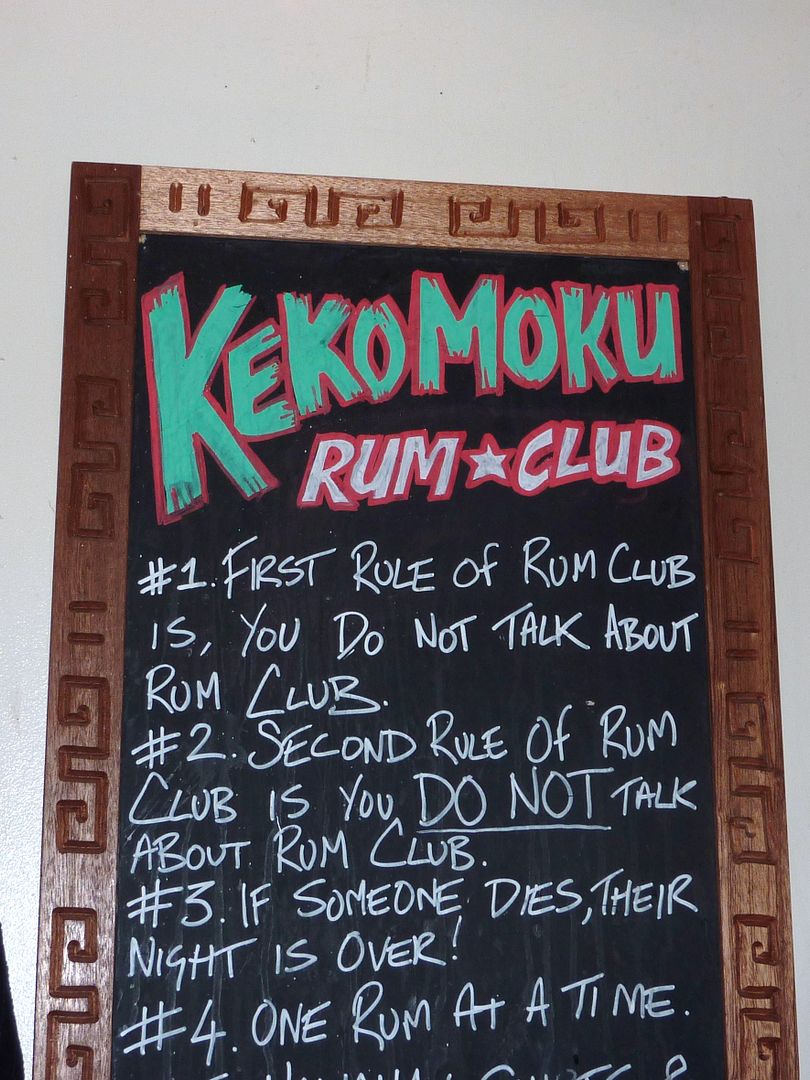 KEKO MOKU
RUM ★ CLUB
#1. FIRST RULE OF RUM CLUB
IS, YOU DO NOT TALK ABOUT
RUM CLUB.
#2. SECOND RULE OF RUM
CLUB IS YOU DO NOT TALK
ABOUT RUM CLUB.
#3. IF SOMEONE DIES, THEIR
NIGHT IS OVER!
#4. ONE RUM AT A TIME.